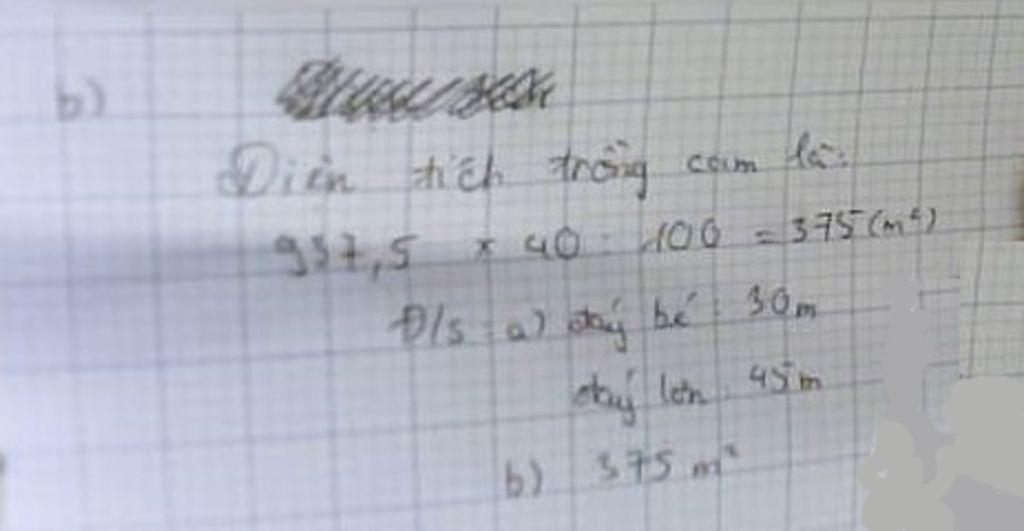 b)
Diện tích trồng cam là:
937,5 × 40 : 100 = 375 (m²)
Đ/S : a) đáy bé : 30m
đáy lớn : 45m
b) 375 m²